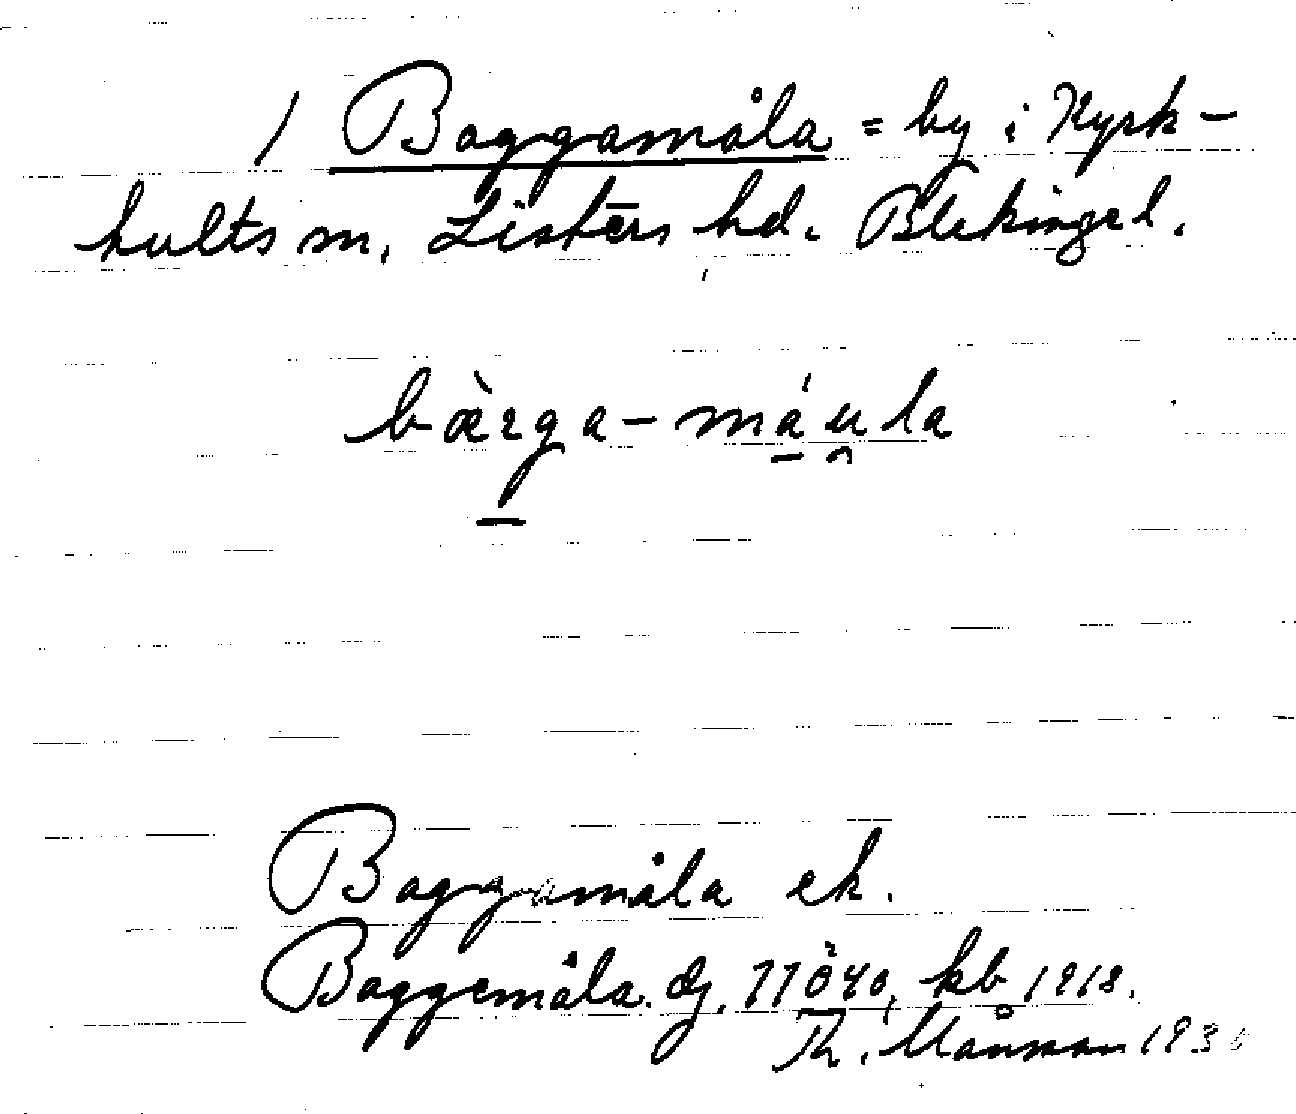 1 Baggamåla = by i Kyrk-
hults sn, Listers hd. Blekinge l.
bàrga-máu̯la
Baggamåla ek.
Baggemåla. dj. 11840, kb 1918.
Th. Månsson 193